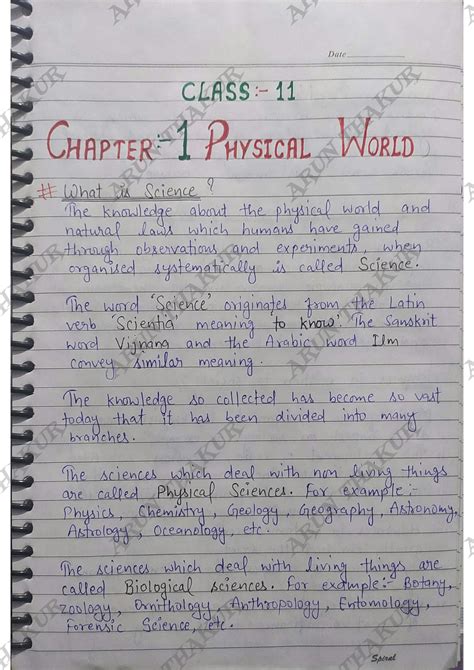 Date
CLASS:- 11
CHAPTER:-1 PHYSICAL WORLD
# What is Science?
The knowledge about the physical world and
natural laws which humans have gained
through observations and experiments, when
organised systematically is called Science.
The word 'Science' originates from the Latin
verb 'Scientia' meaning 'to know'. The Sanskrit
word Vijnana and the Arabic word Ilm
convey similar meaning.
The knowledge so collected has become so vast
today that it has been divided into many
branches.
The sciences which deal with non living things
are called Physical Sciences. For example:-
Physics, Chemistry, Geology, Geography, Astronomy,
Astrology, Oceanology, etc.
The sciences which deal with living things are
called Biological sciences. For example:- Botany,
zoology, Ornithology, Anthropology, Entomology,
Forensic Science, etc.
Spiral
ARUN THAKUR